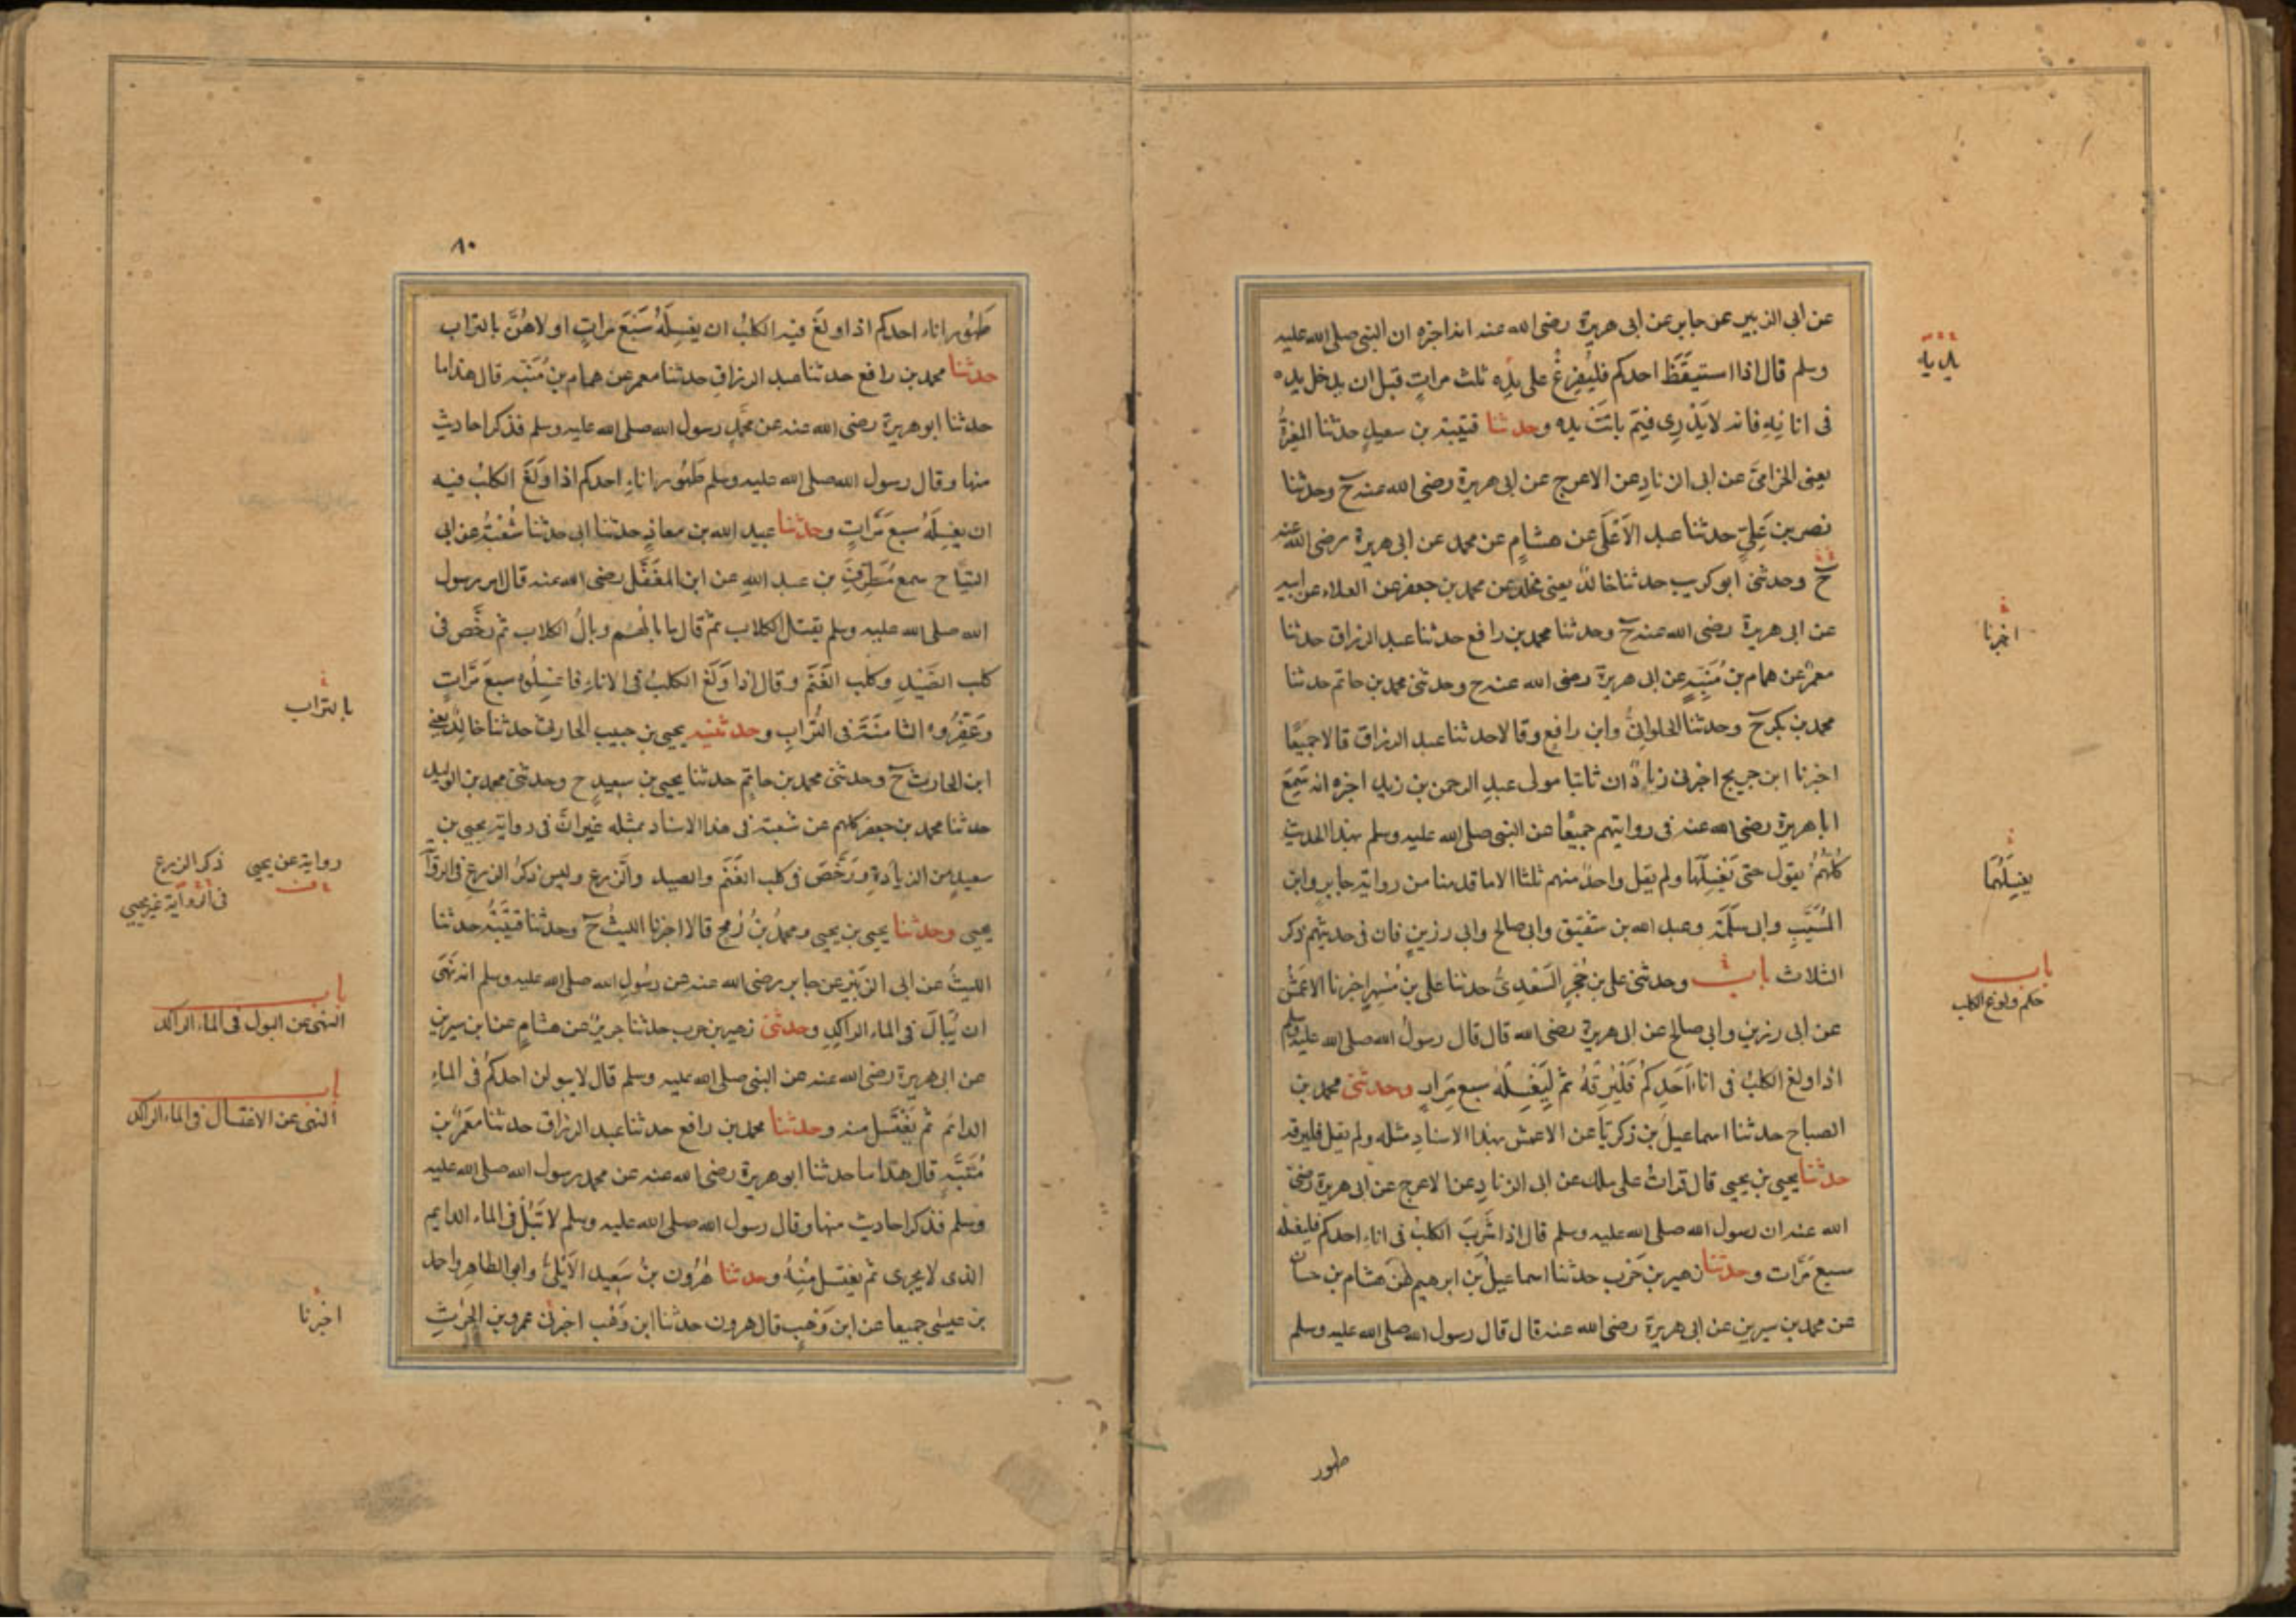 عن ابى الزبير عن جابر عن ابى هريرة رضى الله عنه انه اخبره ان النبى صلى الله عليه
وسلم قال اذا استيقظ احدكم فليُفرِغ على يدِه ثلث مراتٍ قبل ان يدخل يده
فى انائِهِ فانه لا يَدْرِى فيمَ باتَتْ يده وحدثنا قتيبة بن سعيدٍ حدثنا المغيرةُ
يعنى الحزامىَّ عن ابى الزنادِ عن الاعرج عن ابى هريرة رضى الله عنه ح وحدثنا
نصر بن عَلِىٍّ حدثنا عبد الاَعْلَى عن هشامٍ عن محمد عن ابى هريرة رضى الله عنه
ح وحدثنى ابو كريب حدثنا خالدٌ يعنى مخلد عن محمد بن جعفر عن العلاء عن ابيه
عن ابى هريرة رضى الله عنه ح وحدثنا محمد بن رافع حدثنا عبد الرزاق حدثنا
معمر عن همام بن مُنَبِّهٍ عن ابى هريرة رضى الله عنه ح وحدثنى محمد بن حاتم حدثنا
محمد بن بكر ح وحدثنا الحلوانىُّ وابن رافعٍ وقالا حدثنا عبد الرزاق قالا جميعًا
اخبرنا ابن جريج اخبرنى زيادٌ ان ثابتا مولى عبدِ الرحمن بن زيد اخبره انه سَمِعَ
ابا هريرة رضى الله عنه فى روايتهم جميعًا عن النبى صلى الله عليه وسلم بهذا الحديث
كُلُّهُمْ يقول حتى يَغْسِلَهَا ولم يقل واحدٌ منهم ثلثا الا ما قدمنا من رواية جابرٍ وابن
المُسَيَّبِ وابى سَلَمَةَ وعبد الله بن شقيق وابى صالحٍ وابى رزينٍ فان فى حديثهم ذكر
الثلاث باب وحدثنى على بن حُجْرٍ السَّعْدِىُّ حدثنا على بن مُسْهِرٍ اخبرنا الاعمَشُ
عن ابى رزينٍ وابى صالح عن ابى هريرة رضى الله قال قال رسولُ الله صلى الله عليه وسلم
اذا ولغ الكلبُ فى اناءِ اَحَدِكُمْ فَلْيُرِقْهُ ثم لِيَغْسِلْهُ سبع مِرَارٍ وحدثنى محمد بن
الصباح حدثنا اسماعيلُ بن زكريَّا عن الاعمش بهذا الاسنادِ مثله ولم يقل فليرقه
حدثنا يحيى بن يحيى قال قراتُ على ملك عن ابى الزنادِ عن الاعرج عن ابى هريرة رضى
الله عنه ان رسول الله صلى الله عليه وسلم قال اذا شَرِبَ الكلبُ فى اناء احدكم فليغسله
سبع مَرَّات وحدثنا زهير بن حَرْب حدثنا اسماعيلُ بن ابرهيم عن هشام بن حسان
عن محمد بن سيرين عن ابى هريرة رضى الله عنه قال قال رسول الله صلى الله عليه وسلم
طهور
يديه
اخبرنا
يغسِلَهُمَا
باب
حكم ولوغ الكلب
٨٠
طَهُور اناء احدكم اذا ولَغَ فيه الكلبُ ان يغسِلَهُ سَبْعَ مَراتٍ اولاهُنَّ بالتراب
حدثنا محمد بن رافع حدثنا عبد الرزاق حدثنا معمر عن همام بن مُنَبِّه قال هذا ما
حدثنا ابو هريرة رضى الله عنه عن محمَّدٍ رسول الله صلى الله عليه وسلم فذكر احاديث
منها وقال رسول الله صلى الله عليه وسلم طَهُور اناءِ احدكم اذا وَلَغَ الكلبُ فيه
ان يغسِلَهُ سبع مَرَّاتٍ وحدثنا عبيد الله بن معاذٍ حدثنا ابى حدثنا شُعْبَةُ عن ابى
التيَّاح سمع مُطَرِّفَ بن عبد اللهِ عن ابن المغَفَّل رضى الله عنه قال امر رسول
الله صلى الله عليه وسلم بقتل الكلاب ثم قال ما بالهُم وبالُ الكلاب ثم رخَّص فى
كلب الصَّيْدِ وكلب الغَنَم وقال اذا وَلَغ الكلبُ فى الاناءِ فاغسِلُوهُ سبعَ مَرَّاتٍ
وعَفِّرُوهُ الثامنَةَ فى التُّرَابِ وحدثنيه يحيى بن حبيب الحارثى حدثنا خالدٌ يعنى
ابن الحارث ح وحدثنى محمد بن حاتِمٍ حدثنا يحيى بن سعيدٍ ح وحدثنى محمد بن الوليد
حدثنا محمد بن جعفر كلهم عن شعبة فى هذا الاسناد بمثله غير انَّ فى رواية يحيى بن
سعيدٍ من الزيادةِ ورَخَّصَ فى كلب الغَنَم والصيد والزرع وليس ذكرُ الزرعِ فى الرواية
يحيى وحدثنا يحيى بن يحيى ومحمدُ بنُ رُمحٍ قالا اخبرنا الليثُ ح وحدثنا قتيبَةُ حدثنا
الليثُ عن ابى الزبَيْرِ عن جابر رضى الله عنه عن رسُولِ الله صلى الله عليه وسلم انه نَهَى
ان يُبَالَ فى الماء الراكِدِ وحدثنى زهير بن حرب حدثنا جريرٌ عن هشامٍ عن ابن سيرين
عن ابى هريرة رضى الله عنه عن النبى صلى الله عليه وسلم قال لا يبولن احدكُمْ فى الماءِ
الدائم ثم يَغْتَسِل منه وحدثنا محمد بن رافع حدثنا عبد الرزاق حدثنا معمر بن
مُنَبِّهٍ قال هذا ما حدثنا ابو هريرة رضى الله عنه عن محمد رسول الله صلى الله عليه
وسلم فذكر احاديث منها وقال رسول الله صلى الله عليه وسلم لا تَبُلْ فى الماء الدايم
الذى لا يجرى ثم يغتسل مِنْهُ وحدثنا هٰرُون بنُ سَعِيد الاَيْلىُّ وابو الطاهر واحمد
بن عيسٰى جميعا عن ابن وَهْبٍ قال هرون حدثنا ابن وَهْب اخبرنى عمرو بن الحٰرثِ
بالتراب
رواية عن يحيى
ذكر الزرع
فى الرواية غير يحيى
باب
النهى عن البول فى الماء الراكد
باب
النهى عن الاغتسال فى الماء الراكد
اخبرنا